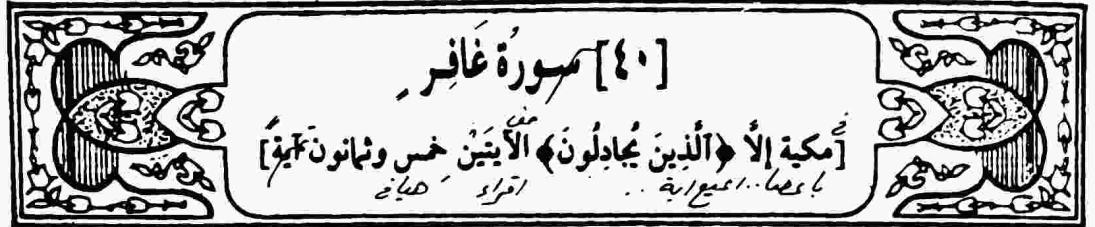 [٤٠] سورة غَافِرٍ
[مكية إلَّا ﴿ٱلَّذِينَ يُجَادِلُونَ﴾ الآيَتَيْن خمس وثمانون آية]
اقراء